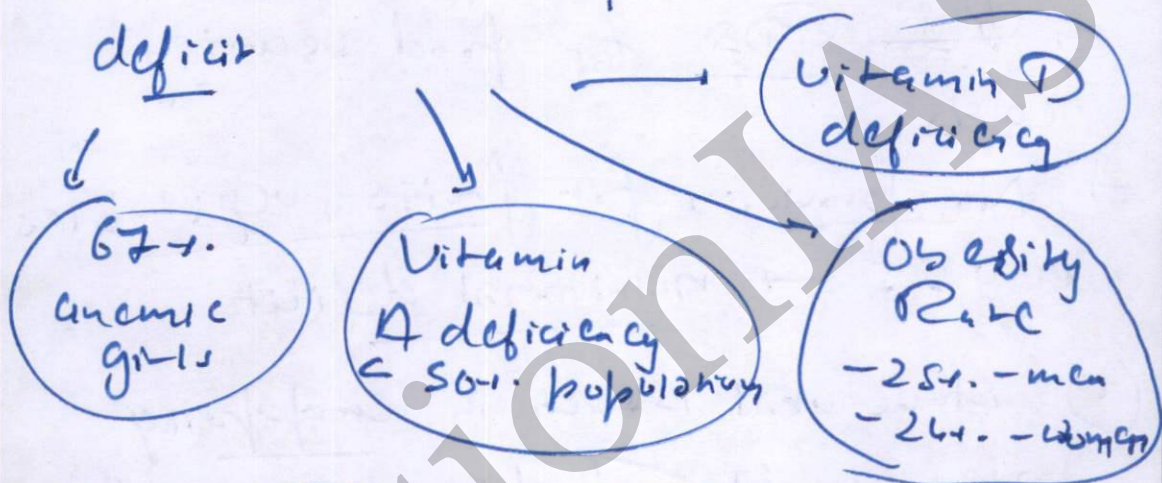 deficit
Vitamin D
deficiency
67%
anemic
girls
Vitamin
A deficiency
< 50%. population
Obesity
Rate
- 25%. - men
- 24%. - women
ionIAS